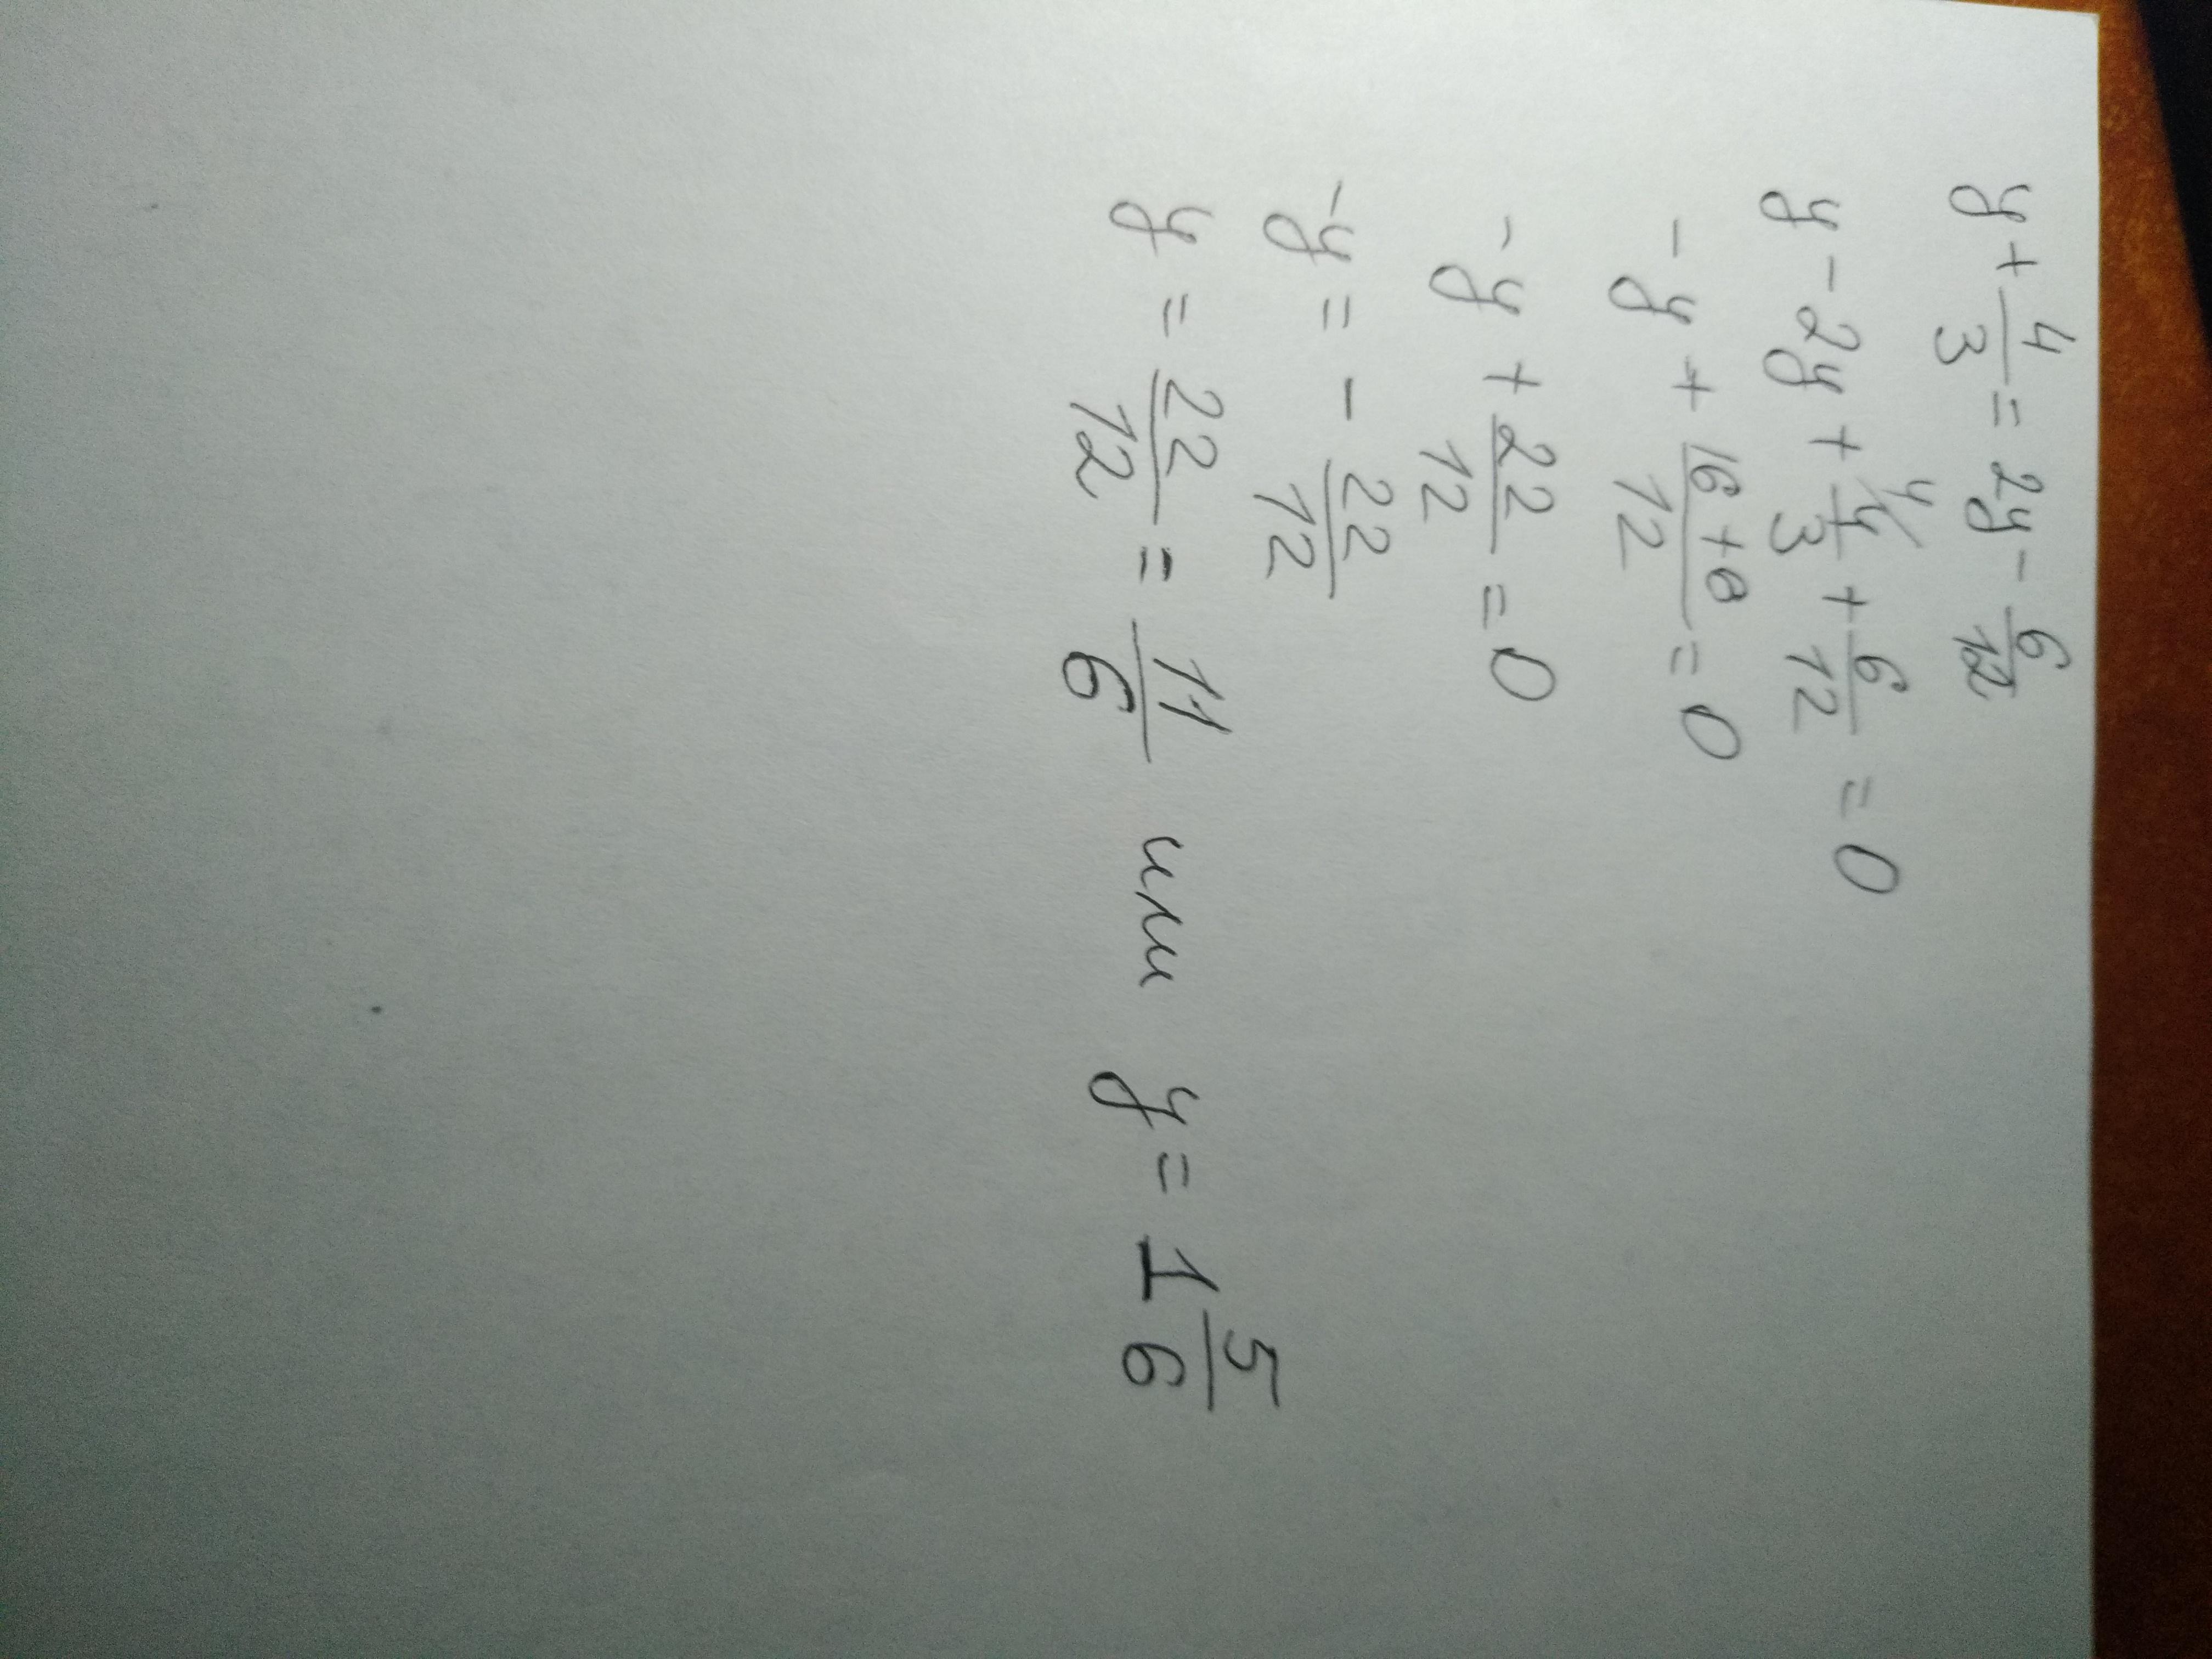 y + 4/3 = 2y - 6/12
y - 2y + 4/3 + 6/12 = 0
-y + (16 + 6)/12 = 0
-y + 22/12 = 0
-y = - 22/12
y = 22/12 = 11/6 или y = 1 5/6